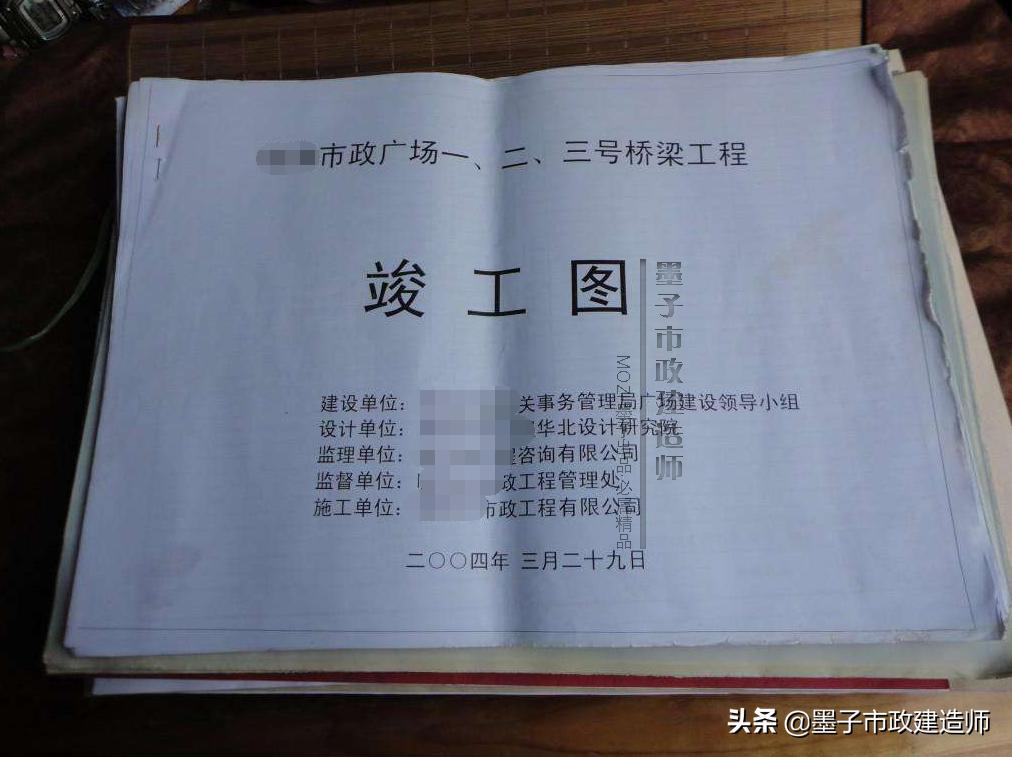 市政广场一、二、三号桥梁工程
竣工图
建设单位：关事务管理局广场建设领导小组
设计单位：华北设计研究院
监理单位：程咨询有限公司
监督单位：政工程管理处
施工单位：市政工程有限公司
二〇〇四年 三月二十九日
墨子市政建造师
头条 @墨子市政建造师